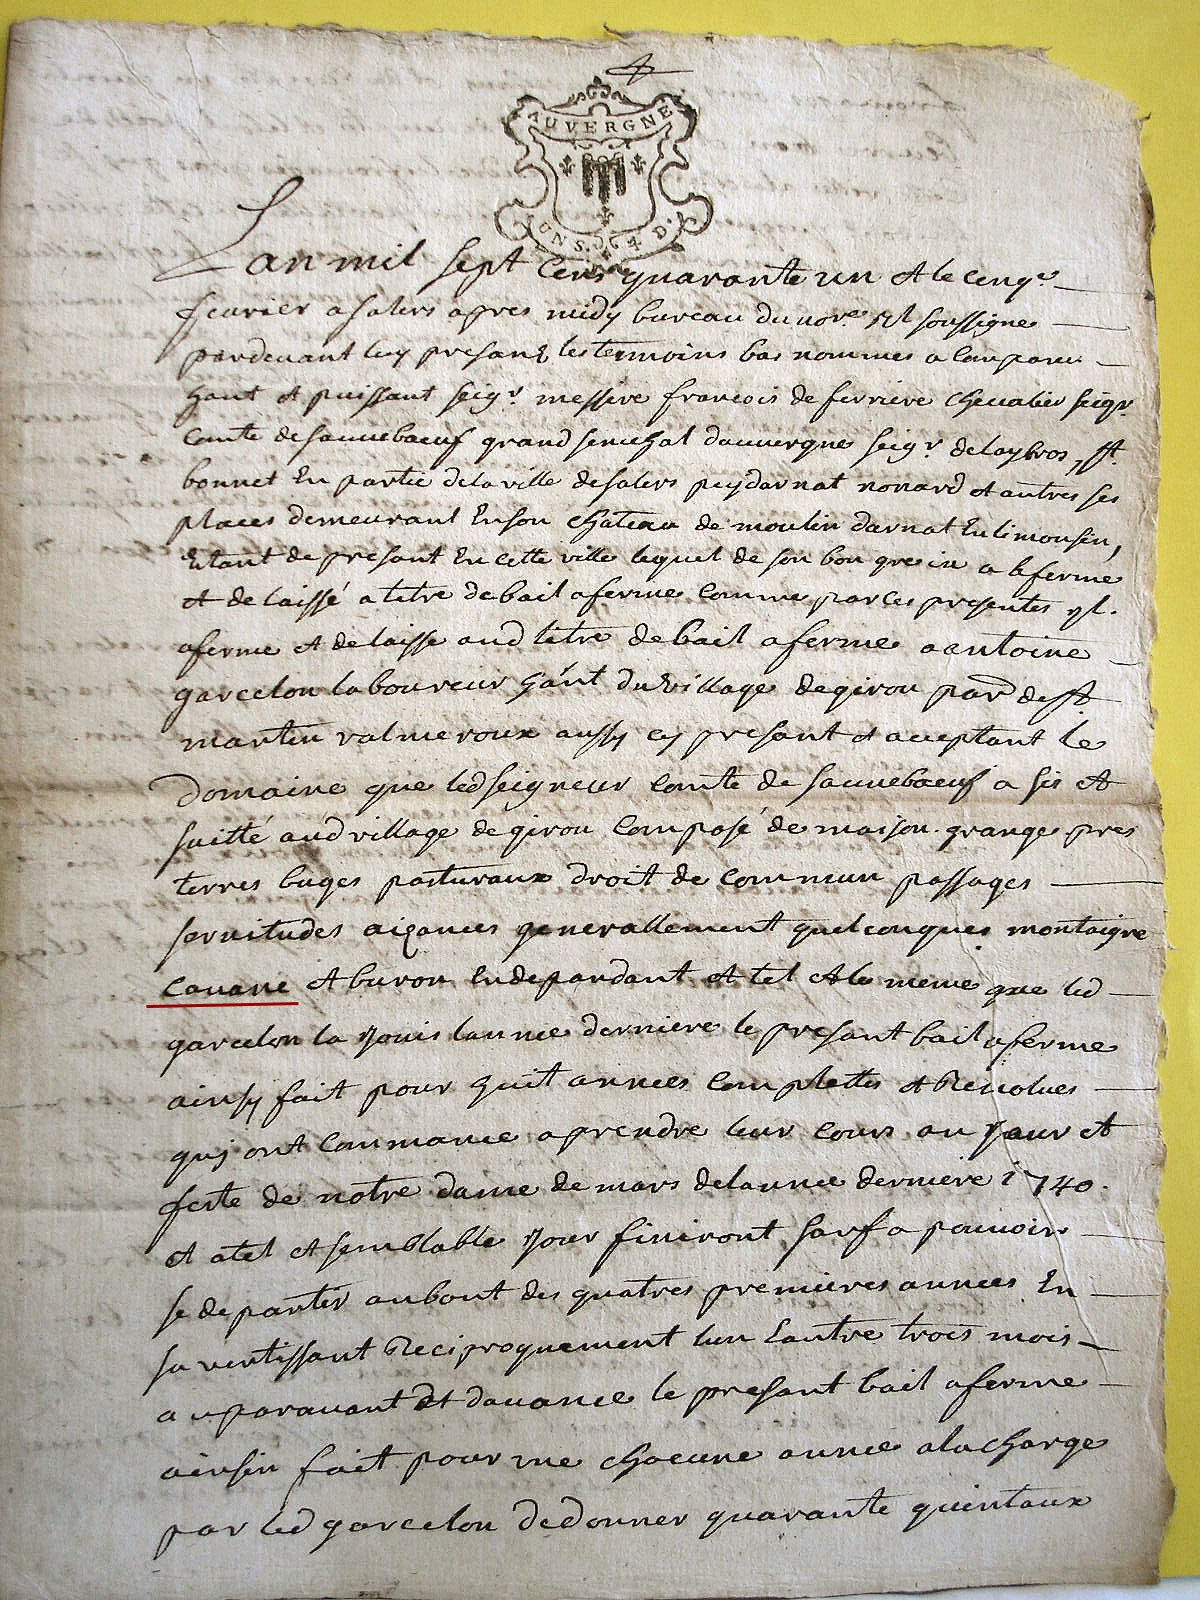 AUVERGNE
UN S. 4 D.
Lan mil sept cens quarante un et le cinqe
feurier a salers apres midy bureau du nore Rl soussigne
pardeuant luy presans les temoins bas nommes a comparu
haut et puissant seigr messire francois de ferriere cheualier seigr
comte de sauuebœuf grand senechal dauuergne seigr de laybros, st
bonnet en partie de la ville de salers puydarnat nonard et autres ses
places demeurant en son chateau de moulin darnat en limousin,
etant de presant en cette ville lequel de son bon gre a aferme
et delaissé a titre de bail a ferme comme par ces presentes yl
aferme et delaisse aud titre de bail a ferme a antoine
garcelon laboureur hant du village de girou parr de st
martin valmeroux aussy cy presant et acceptant le
domaine que led seigneur comte de sauuebœuf a sis et
saitté aud village de girou composé de maison grange pres
terres buges pasturaux droit de commun passages
seruitudes aizances generallement quelconques montaigne
cauane et buron en depandant et tel et le meme que led
garcelon la jouis lannee derniere le presant bail a ferme
ainsy fait pour huit annees complettes et reuolues
quy ont commancé a prendre leur cours au jour et
feste de notre dame de mars de lannee derniere 1740.
et a tel et semblable jour finiront sauf a pouuoir
se departir au bout des quatres premieres annees en
sa vertissant reciproquement lun lautre trois mois
auparauant et dauance le presant bail a ferme
ainsin fait pour une chacune annee a la charge
par led garcelon de donner quarante quintaux